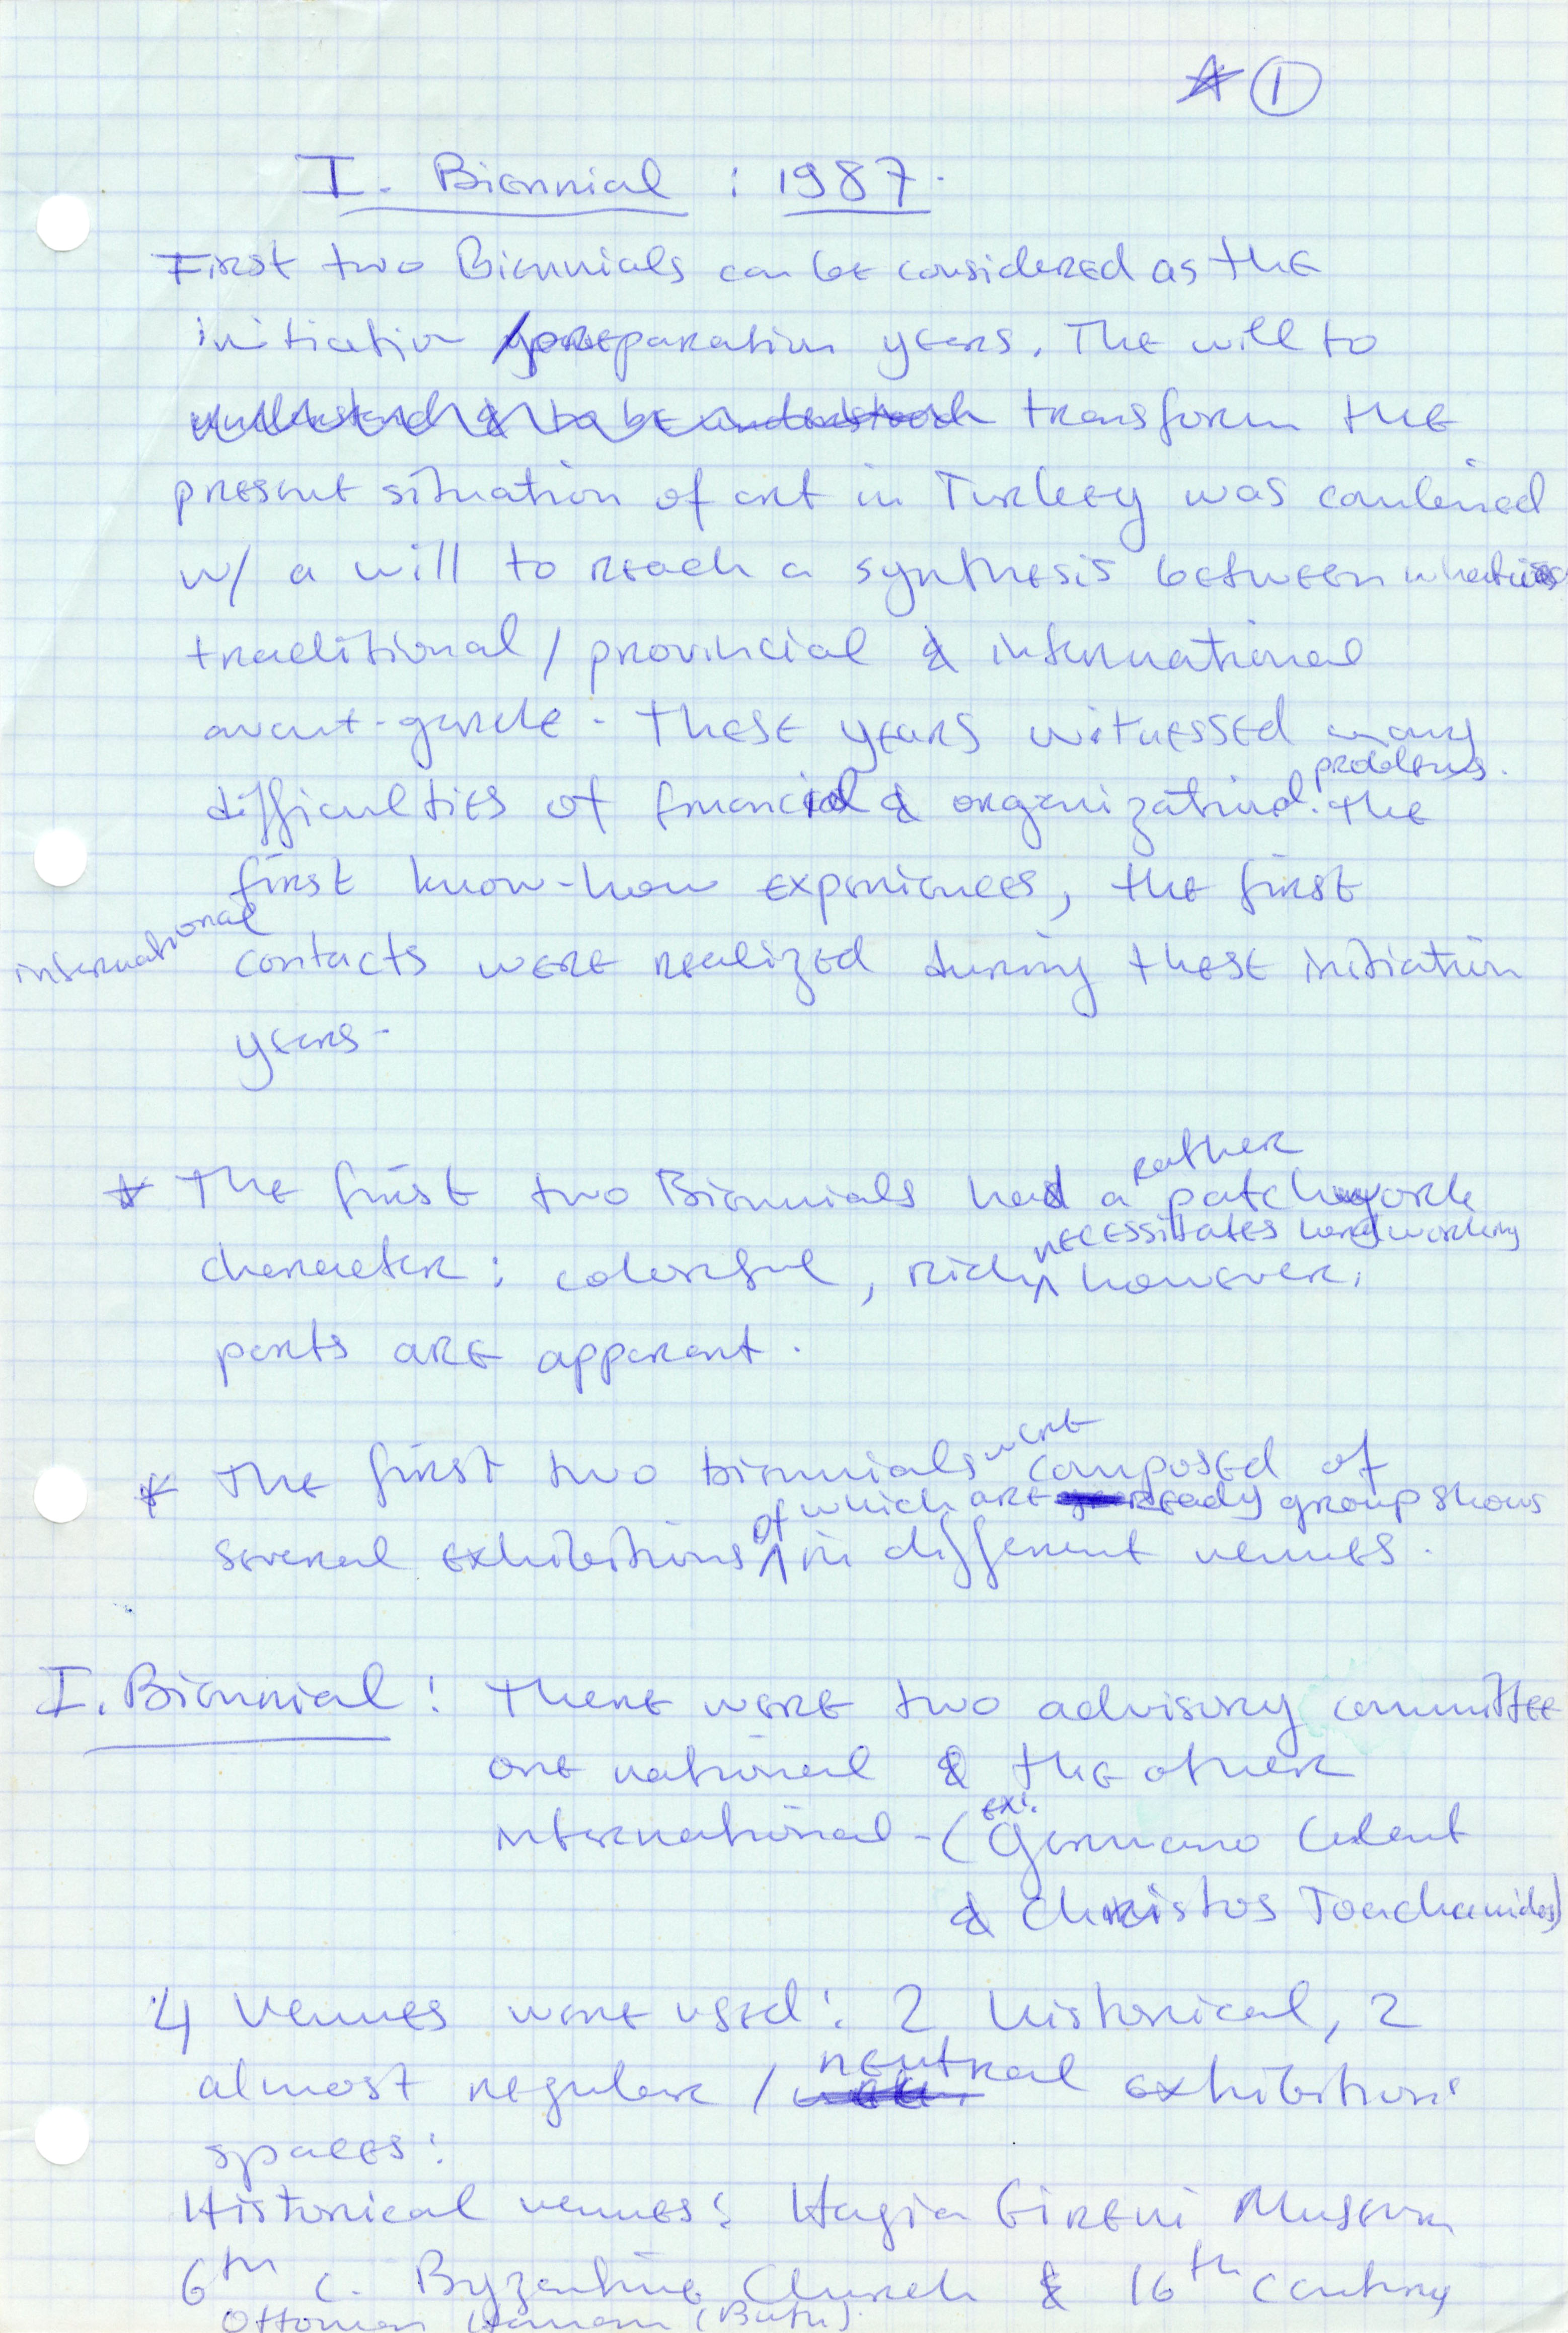 ☆ ①
I. Biennial : 1987.
First two Biennials can be considered as the
initiation / preparation years. The will to
understand & to be understood transform the
present situation of art in Turkey was combined
w/ a will to reach a synthesis between what is
traditional / provincial & international
avant-garde. These years witnessed many
problems.
difficulties of financial & organizational. The
first know-how experiences, the first
international
contacts were realized during these initiation
years.
rather
* The first two Biennials had a patchwork
necessitates hard working
character: colorful, rich, ^ however,
parts are apparent.
were
* The first two biennials composed of
of which are ready group shows
several exhibitions ^ in different venues.
I. Biennial: There were two advisory committee
one national & the other
ex:
international - (Germano Celent
& Christos Joachamides)
4 Venues were used: 2 historical, 2
neutral
almost regular / exhibition
spaces:
Historical venues: Hagia Eireni Museum
6th c. Byzantine Church & 16th century
Ottoman Hamam (Bath).